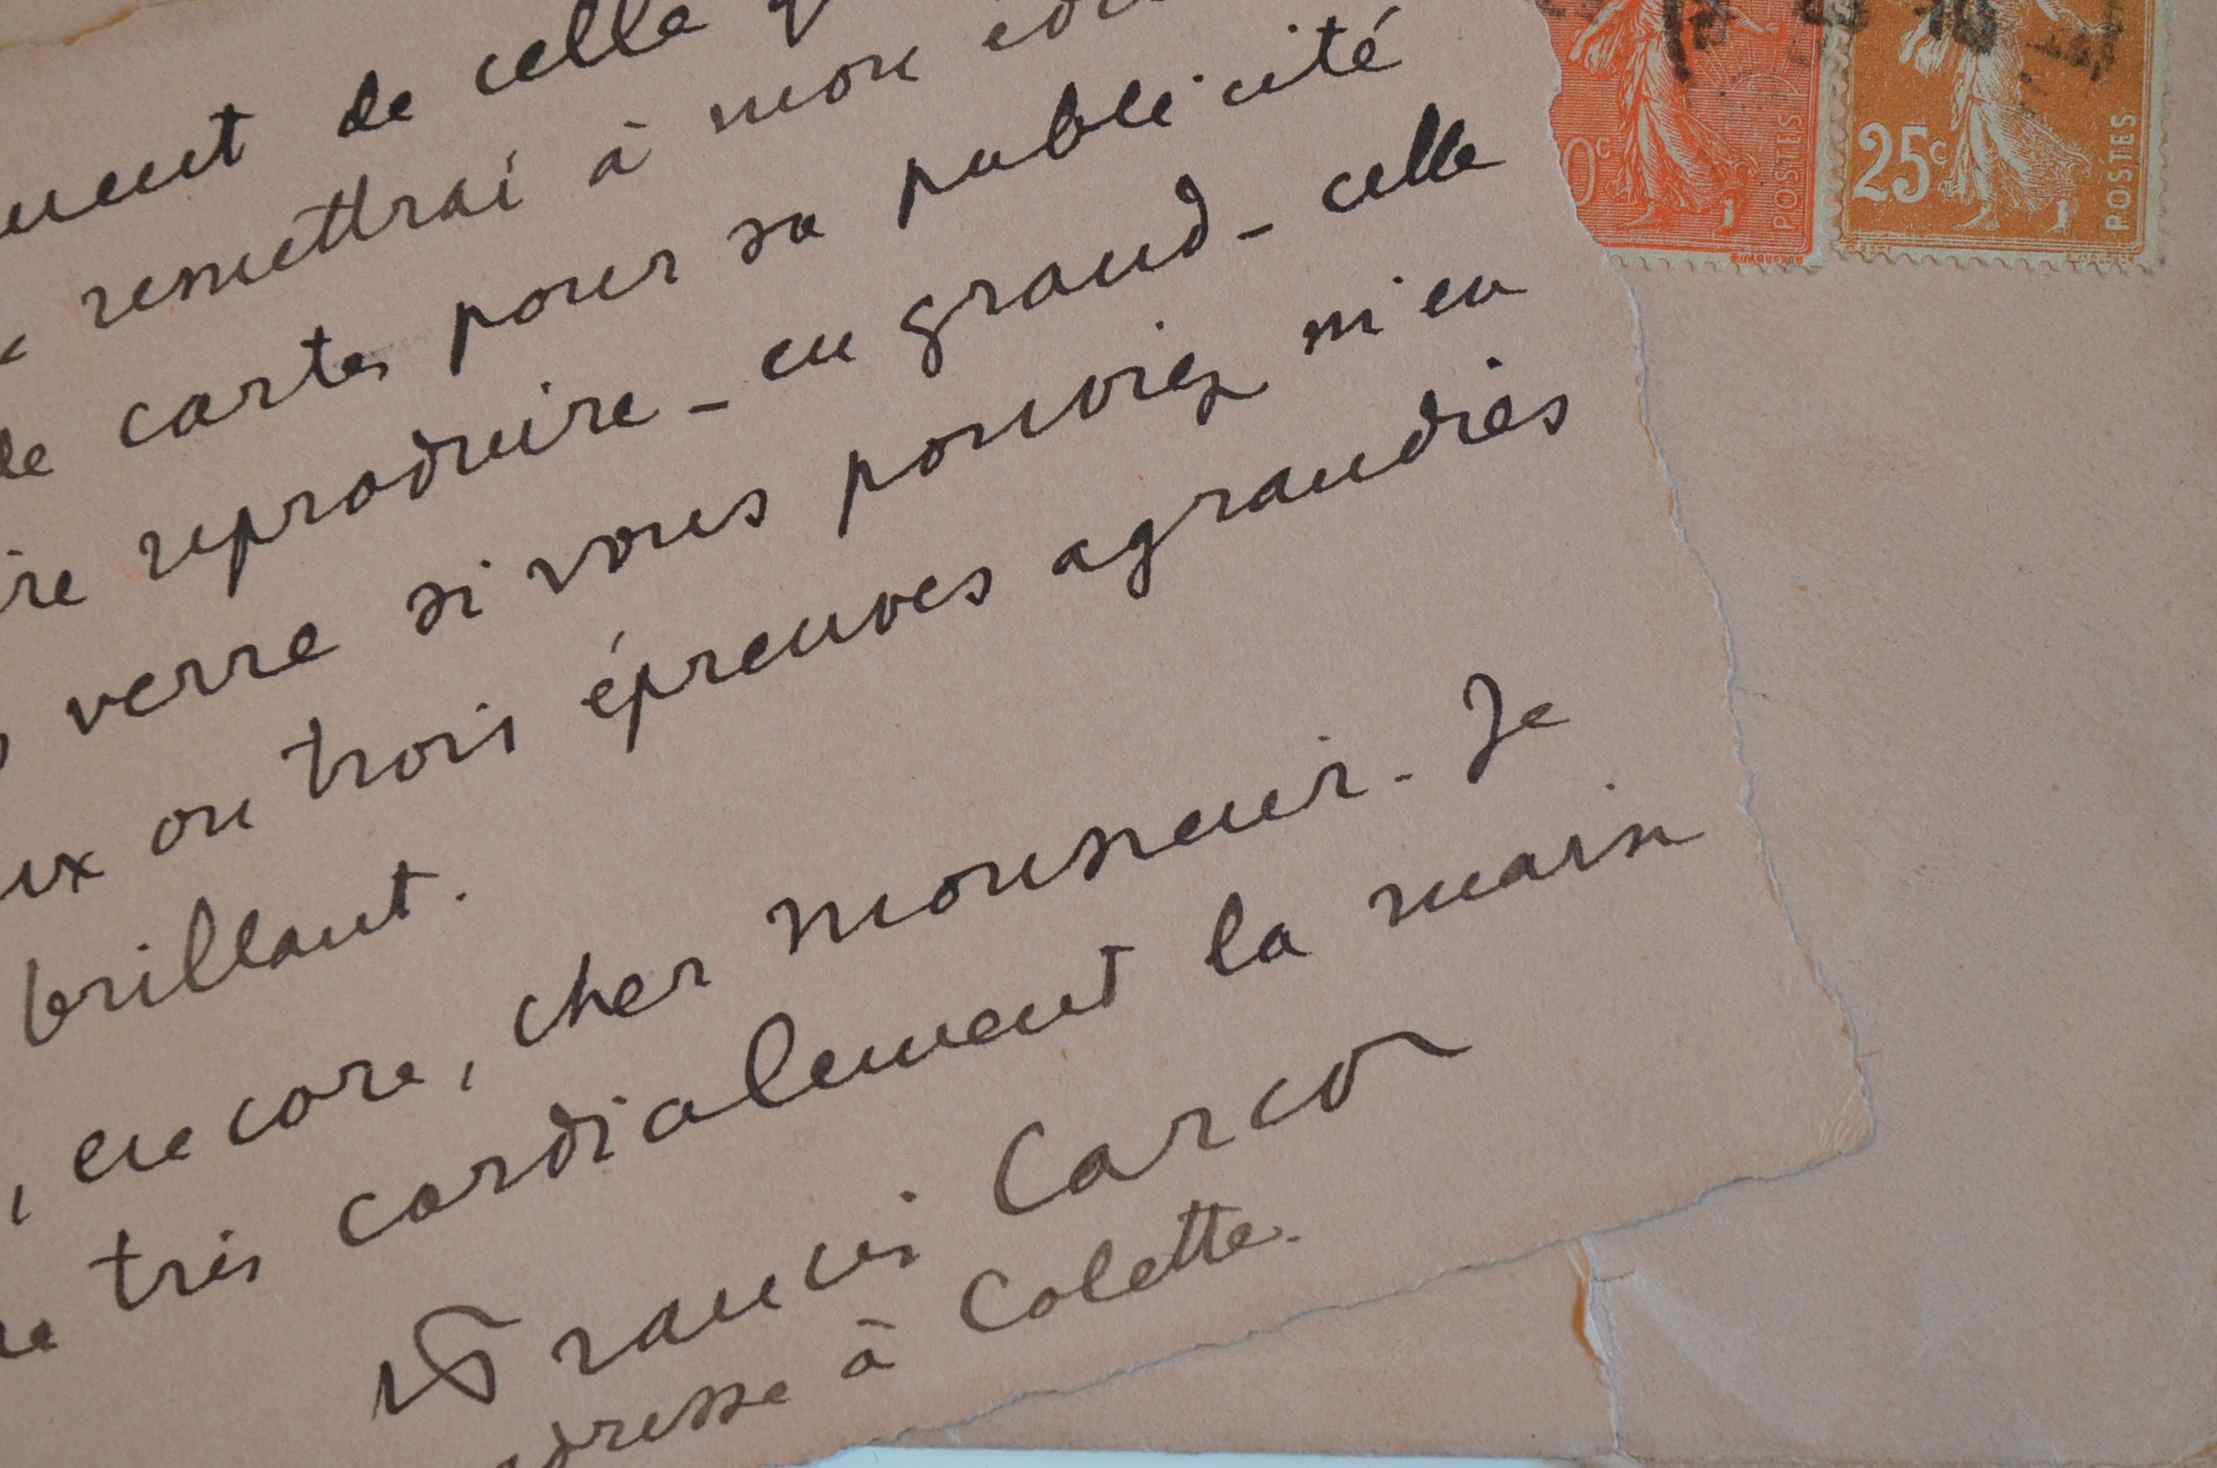 ment de celle
remettrai à mon
de cartes pour sa publicité
ire reproduire - en grand - celle
verre si vous pouviez m'en
ux ou trois épreuves agrandies
brillant.
, encore, cher monsieur. Je
très cordialement la main
Francis Carco
adresse à Colette.
0c POSTES
25c POSTES